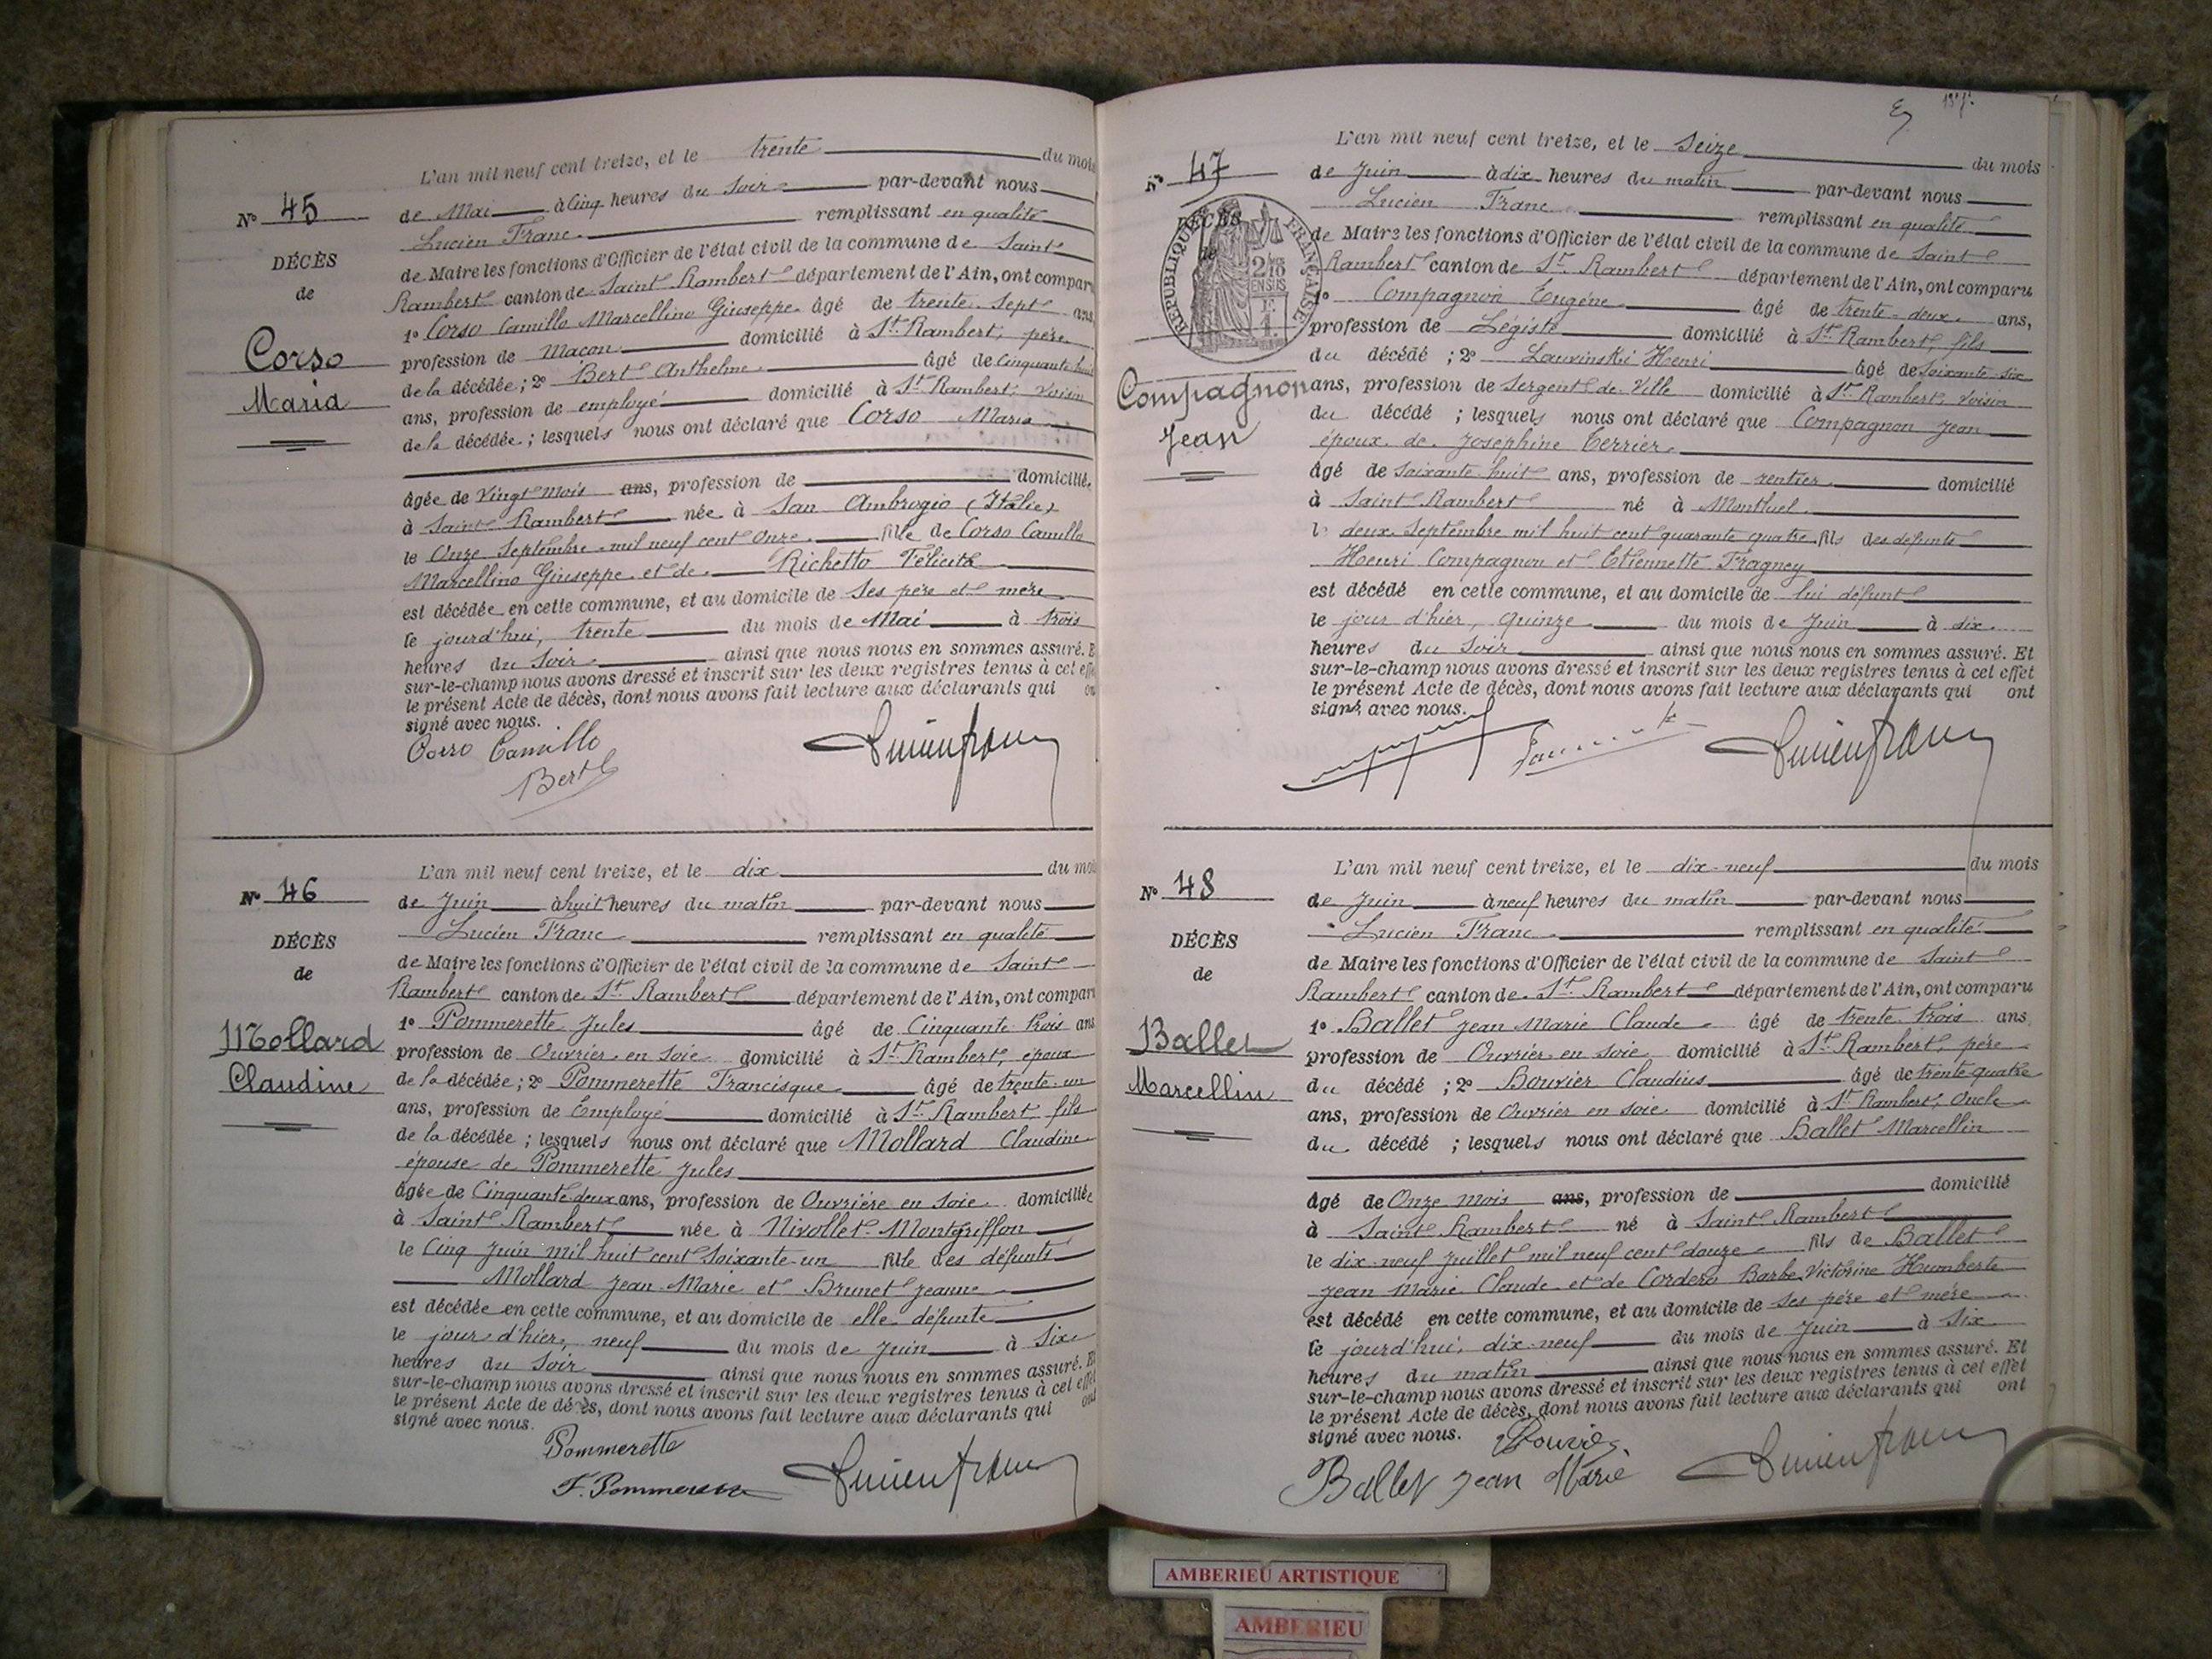 L'an mil neuf cent treize, et le trente du mois
N° 45
de Mai à Cinq heures du Soir par-devant nous
Lucien Franc remplissant en qualité
DÉCÈS
de Maire les fonctions d'Officier de l'état civil de la commune de Saint
de
Rambert canton de Saint Rambert département de l'Ain, ont comparu
1° Corso Camillo Marcellino Giuseppe âgé de trente-sept ans,
Corso
profession de Maçon domicilié à St Rambert, père
Maria
de la décédée ; 2° Bert Anthelme âgé de Cinquante huit
ans, profession de employé domicilié à St Rambert, voisin
de la décédée ; lesquels nous ont déclaré que Corso Maria
âgée de vingt mois ans, profession de domiciliée
à Saint Rambert née à San Ambrogio (Italie)
le Onze Septembre mil neuf cent Onze fille de Corso Camillo
Marcellino Giuseppe et de Richetto Félicité
est décédée en cette commune, et au domicile de Ses père et mère
le jourd'hui, trente du mois de Mai à trois
heures du Soir ainsi que nous nous en sommes assuré. Et
sur-le-champ nous avons dressé et inscrit sur les deux registres tenus à cet effet
le présent Acte de décès, dont nous avons fait lecture aux déclarants qui ont
signé avec nous.
Corso Camillo
Bert
Lucien Franc
L'an mil neuf cent treize, et le dix du mois
N° 46
de Juin à huit heures du matin par-devant nous
Lucien Franc remplissant en qualité
DÉCÈS
de Maire les fonctions d'Officier de l'état civil de la commune de Saint
de
Rambert canton de St Rambert département de l'Ain, ont comparu
1° Pommerette Jules âgé de Cinquante trois ans
Mollard
profession de Ouvrier en Soie domicilié à St Rambert, époux
Claudine
de la décédée ; 2° Pommerette Francisque âgé de trente-un
ans, profession de Employé domicilié à St Rambert fils
de la décédée ; lesquels nous ont déclaré que Mollard Claudine
épouse de Pommerette Jules
âgée de Cinquante-deux ans, profession de Ouvrière en Soie domiciliée
à Saint Rambert née à Nivollet-Montgriffon
le Cinq Juin mil huit cent Soixante-un fille des défunts
Mollard Jean Marie et Brunet Jeanne
est décédée en cette commune, et au domicile de elle défunte
le jour d'hier, neuf du mois de Juin à Six
heures du Soir ainsi que nous nous en sommes assuré. Et
sur-le-champ nous avons dressé et inscrit sur les deux registres tenus à cet effet
le présent Acte de décès, dont nous avons fait lecture aux déclarants qui ont
signé avec nous.
Pommerette
F. Pommerette
Lucien Franc
L'an mil neuf cent treize, et le Seize du mois
N° 47
de Juin à dix heures du matin par-devant nous
Lucien Franc remplissant en qualité
DÉCÈS
de
RÉPUBLIQUE FRANÇAISE
de Maire les fonctions d'Officier de l'état civil de la commune de Saint
Rambert canton de St Rambert département de l'Ain, ont comparu
1° Compagnon Eugène âgé de trente-deux ans,
profession de Légiste domicilié à St Rambert, fils
du décédé ; 2° Lauvinski Henri âgé de Soixante six
Compagnon
ans, profession de Sergent de Ville domicilié à St Rambert, voisin
Jean
du décédé ; lesquels nous ont déclaré que Compagnon Jean
époux de Joséphine Terrier
âgé de Soixante-huit ans, profession de rentier domicilié
à Saint Rambert né à Montluel
le deux Septembre mil huit cent quarante quatre fils des défunts
Henri Compagnon et Etiennette Fragney
est décédé en cette commune, et au domicile de lui défunt
le jour d'hier, quinze du mois de Juin à dix
heures du Soir ainsi que nous nous en sommes assuré. Et
sur-le-champ nous avons dressé et inscrit sur les deux registres tenus à cet effet
le présent Acte de décès, dont nous avons fait lecture aux déclarants qui ont
signé avec nous.
Lucien Franc
L'an mil neuf cent treize, et le dix-neuf du mois
N° 48
de Juin à neuf heures du matin par-devant nous
Lucien Franc remplissant en qualité
DÉCÈS
de Maire les fonctions d'Officier de l'état civil de la commune de Saint
de
Rambert canton de St Rambert département de l'Ain, ont comparu
1° Ballet Jean Marie Claude âgé de trente trois ans
Ballet
profession de Ouvrier en Soie domicilié à St Rambert, père
Marcellin
du décédé ; 2° Bouvier Claudius âgé de trente quatre
ans, profession de Ouvrier en Soie domicilié à St Rambert, Oncle
du décédé ; lesquels nous ont déclaré que Ballet Marcellin
âgé de Onze mois ans, profession de domicilié
à Saint Rambert né à Saint Rambert
le dix-neuf Juillet mil neuf cent douze fils de Ballet
Jean Marie Claude et de Cordero Barbe Victorine Humberte
est décédé en cette commune, et au domicile de Ses père et mère
le jourd'hui, dix-neuf du mois de Juin à Six
heures du matin ainsi que nous nous en sommes assuré. Et
sur-le-champ nous avons dressé et inscrit sur les deux registres tenus à cet effet
le présent Acte de décès, dont nous avons fait lecture aux déclarants qui ont
signé avec nous.
Bouvier
Ballet Jean Marie
Lucien Franc
AMBERIEU ARTISTIQUE
AMBERIEU